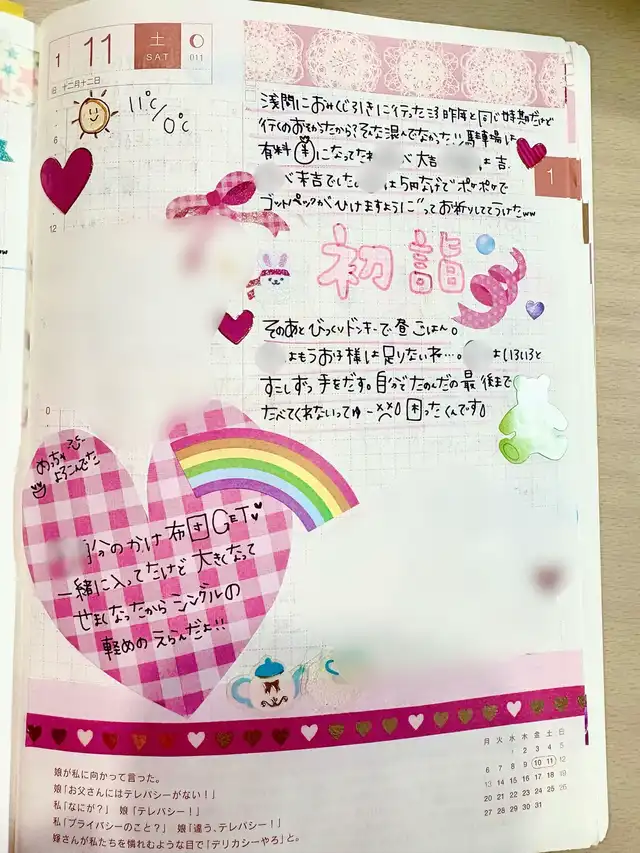 1 11 土 SAT 011
十二月十二日
6
12
11℃/0℃
浅間におみくじ引きに行ったヨ 昨年と同じ時期だけど
行くのおそかったから?そんな混んでなかった!! 駐車場は
有料¥になってた べ大吉 よ吉
べ末吉でした。 は5円なげてポケポケで
ゴットパックがひけますように"ってお祈りしててうけたww
1
初詣
そのあと びっくりドンキーで 昼ごはん。
よもうお子様は足りないね…。 よいろいろと
すこしずつ手をだす。自分でたのんだの最後まで
たべてくれないってゆー 困ったくんです。
めっちゃ
よろこんでた
分のかけ布団GET
一緒に入ってたけど大きくなって
せまくなったからシングルの
軽めのえらんだよ!!
娘が私に向かって言った。
娘「お父さんにはテレパシーがない!」
私「なにが?」 娘「テレパシー!」
私「プライバシーのこと?」 娘「違う、テレパシー!」
嫁さんが私たちを憐れむような目で「デリカシーやろ」と。
月 火 水 木 金 土 日
1 2 3 4 5
6 7 8 9 10 11 12
13 14 15 16 17 18 19
20 21 22 23 24 25 26
27 28 29 30 31